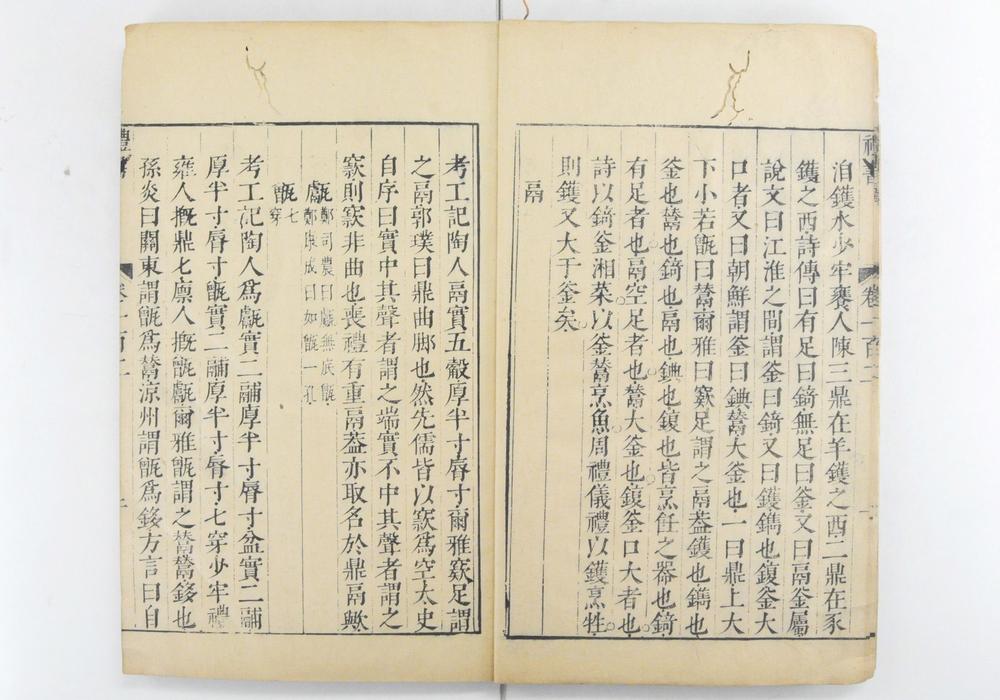 洎鑊水少牢饔人陳三鼎在羊鑊之西二鼎在豕
鑊之西詩傳曰有足曰錡無足曰釜又曰鬲釜屬
說文曰江淮之間謂釜曰錡又曰鑊鐫也鍑釜大
口者又曰朝鮮謂釜曰錪鬵大釜也一曰鼎上大
下小若甑曰鬵爾雅曰窾足謂之鬲葢鑊也鐫也
釜也鬵也錡也鬲也錪也鍑也皆烹飪之器也錡
有足者也鬲空足者也鬵大釜也鍑釜口大者也
詩以錡釜湘菜以釜鬵烹魚周禮儀禮以鑊烹牲
則鑊又大于釜矣
鬲
考工記陶人鬲實五觳厚半寸脣寸爾雅窾足謂
之鬲郭璞曰鼎曲脚也然先儒皆以窾爲空太史
自序曰實中其聲者謂之端實不中其聲者謂之
窾則窾非曲也喪禮有重鬲葢亦取名於鼎鬲歟
甗鄭司農曰甗無底甑
鄭康成曰如甑一孔
甑七穿
考工記陶人爲甗實二鬴厚半寸脣寸盆實二鬴
厚半寸脣寸甑實二鬴厚半寸脣寸七穿少牢禮
雍人摡鼎七廩人摡甑甗爾雅甑謂之鬵鬵鉹也
孫炎曰關東謂甑爲鬵涼州謂甑爲鉹方言曰自
卷一百二